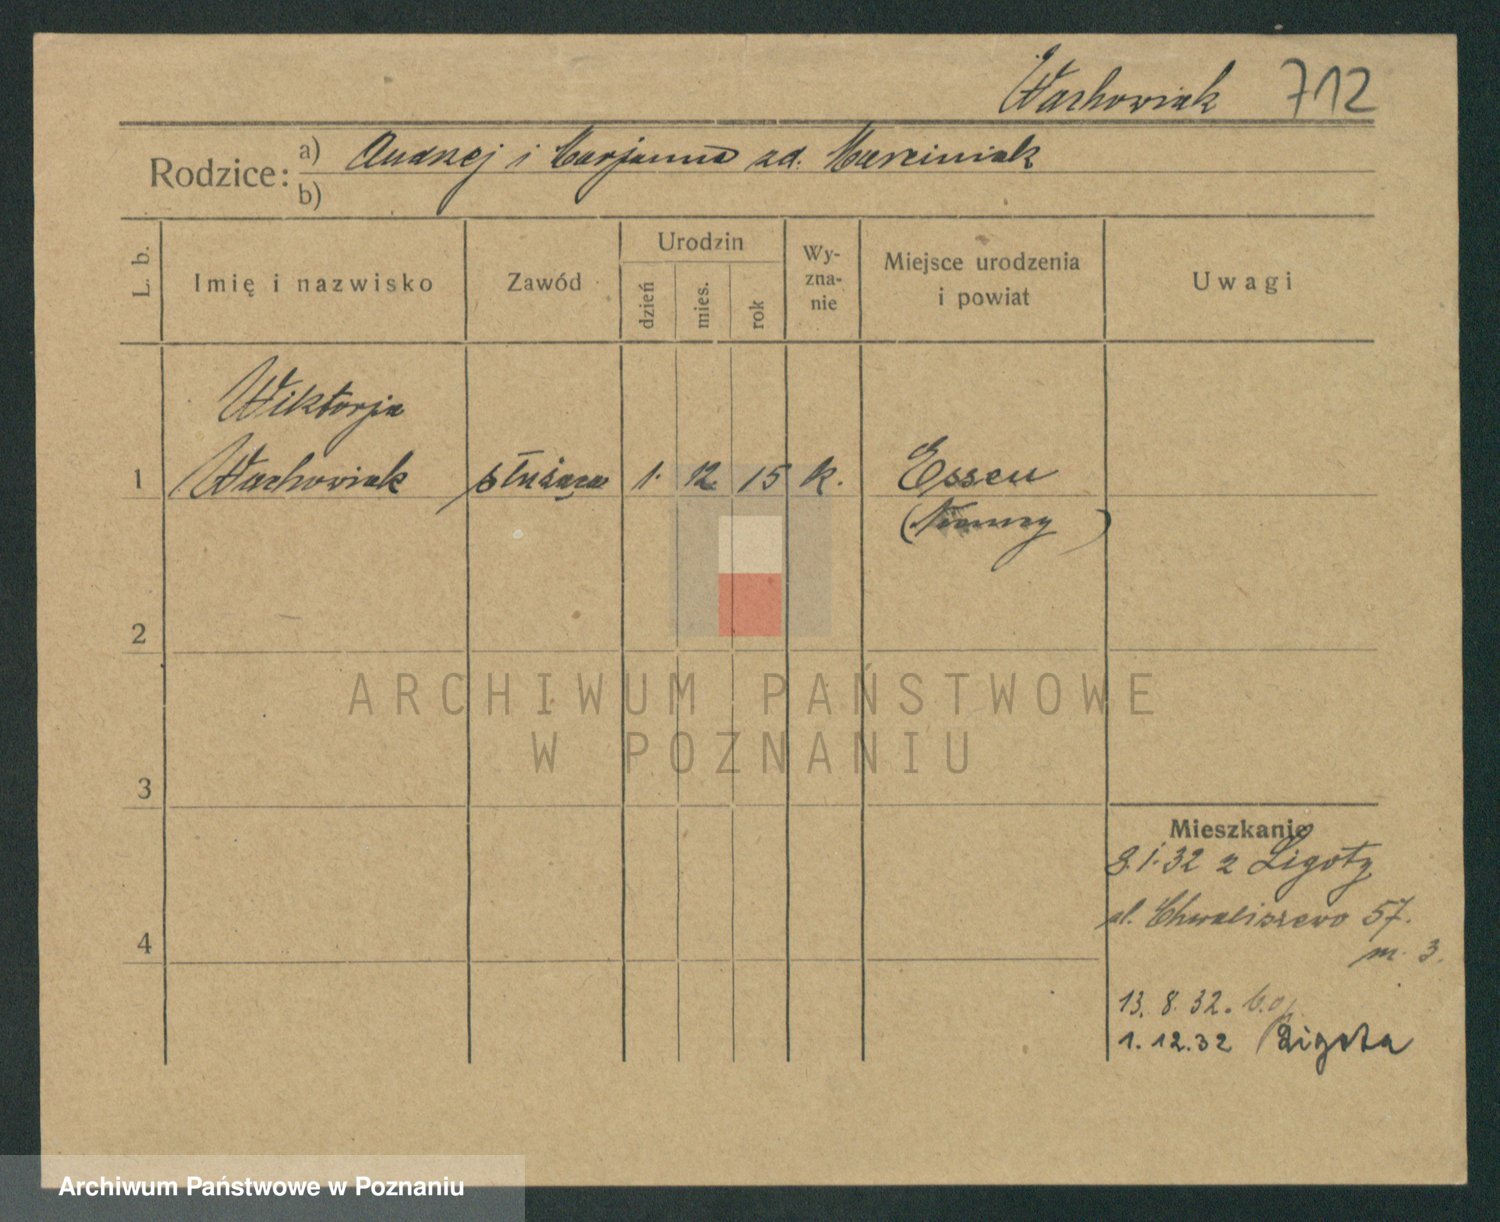 Wachowiak 712
Rodzice: a) Andrzej i Marjanna zd. Marciniak
b)
L. b.
Imię i nazwisko
Zawód
Urodzin
dzień
mies.
rok
Wy-
zna-
nie
Miejsce urodzenia
i powiat
Uwagi
Wiktorja
1 Wachowiak służąca 1. 12. 15 k. Essen
(Niemcy)
2
ARCHIWUM PAŃSTWOWE
W POZNANIU
3
Mieszkanie
8.1.32 z Ligoty
ul. Chwaliszewo 57.
m. 3.
4
13. 8. 32.
1. 12. 32 Ligota
Archiwum Państwowe w Poznaniu